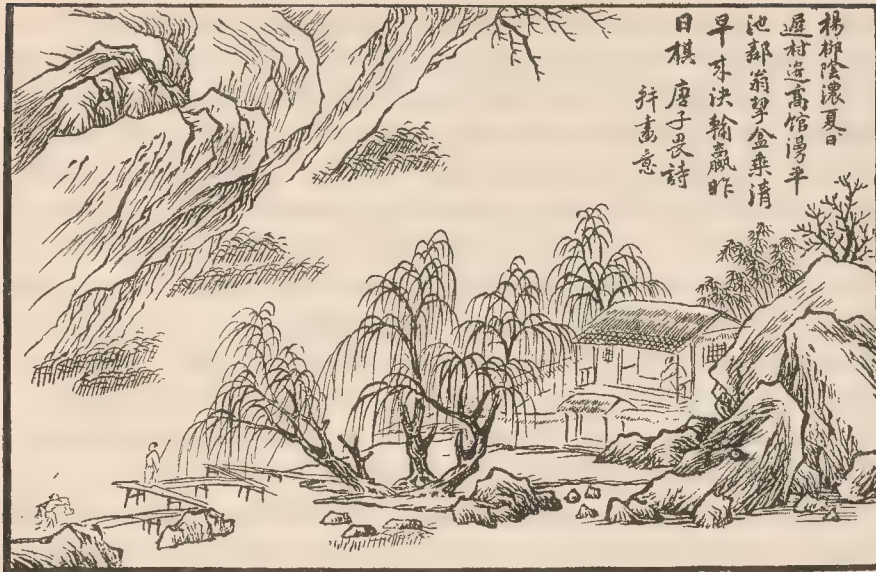 楊柳陰濃夏日
遲村邊高館漫平
池鄰翁挈盒乘清
早來決輸贏昨
日棋 唐子畏詩
并畫意